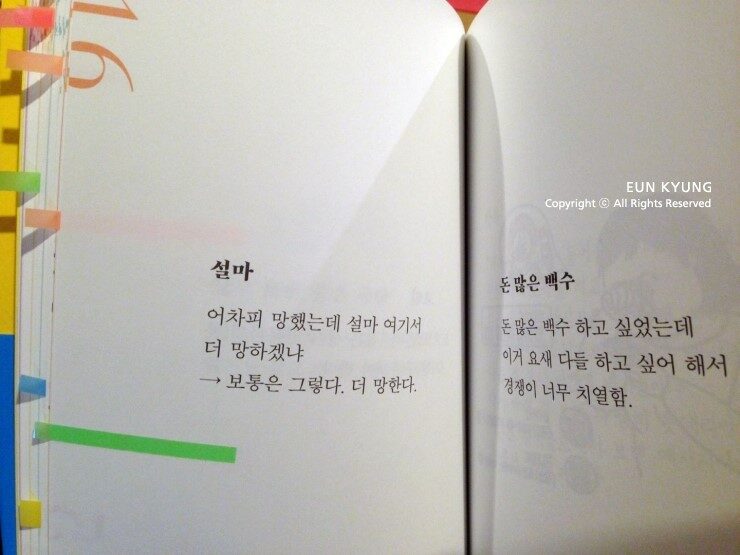 16
설마
어차피 망했는데 설마 여기서
더 망하겠냐
→ 보통은 그렇다. 더 망한다.
EUN KYUNG
Copyright ⓒ All Rights Reserved
돈 많은 백수
돈 많은 백수 하고 싶었는데
이거 요새 다들 하고 싶어 해서
경쟁이 너무 치열함.